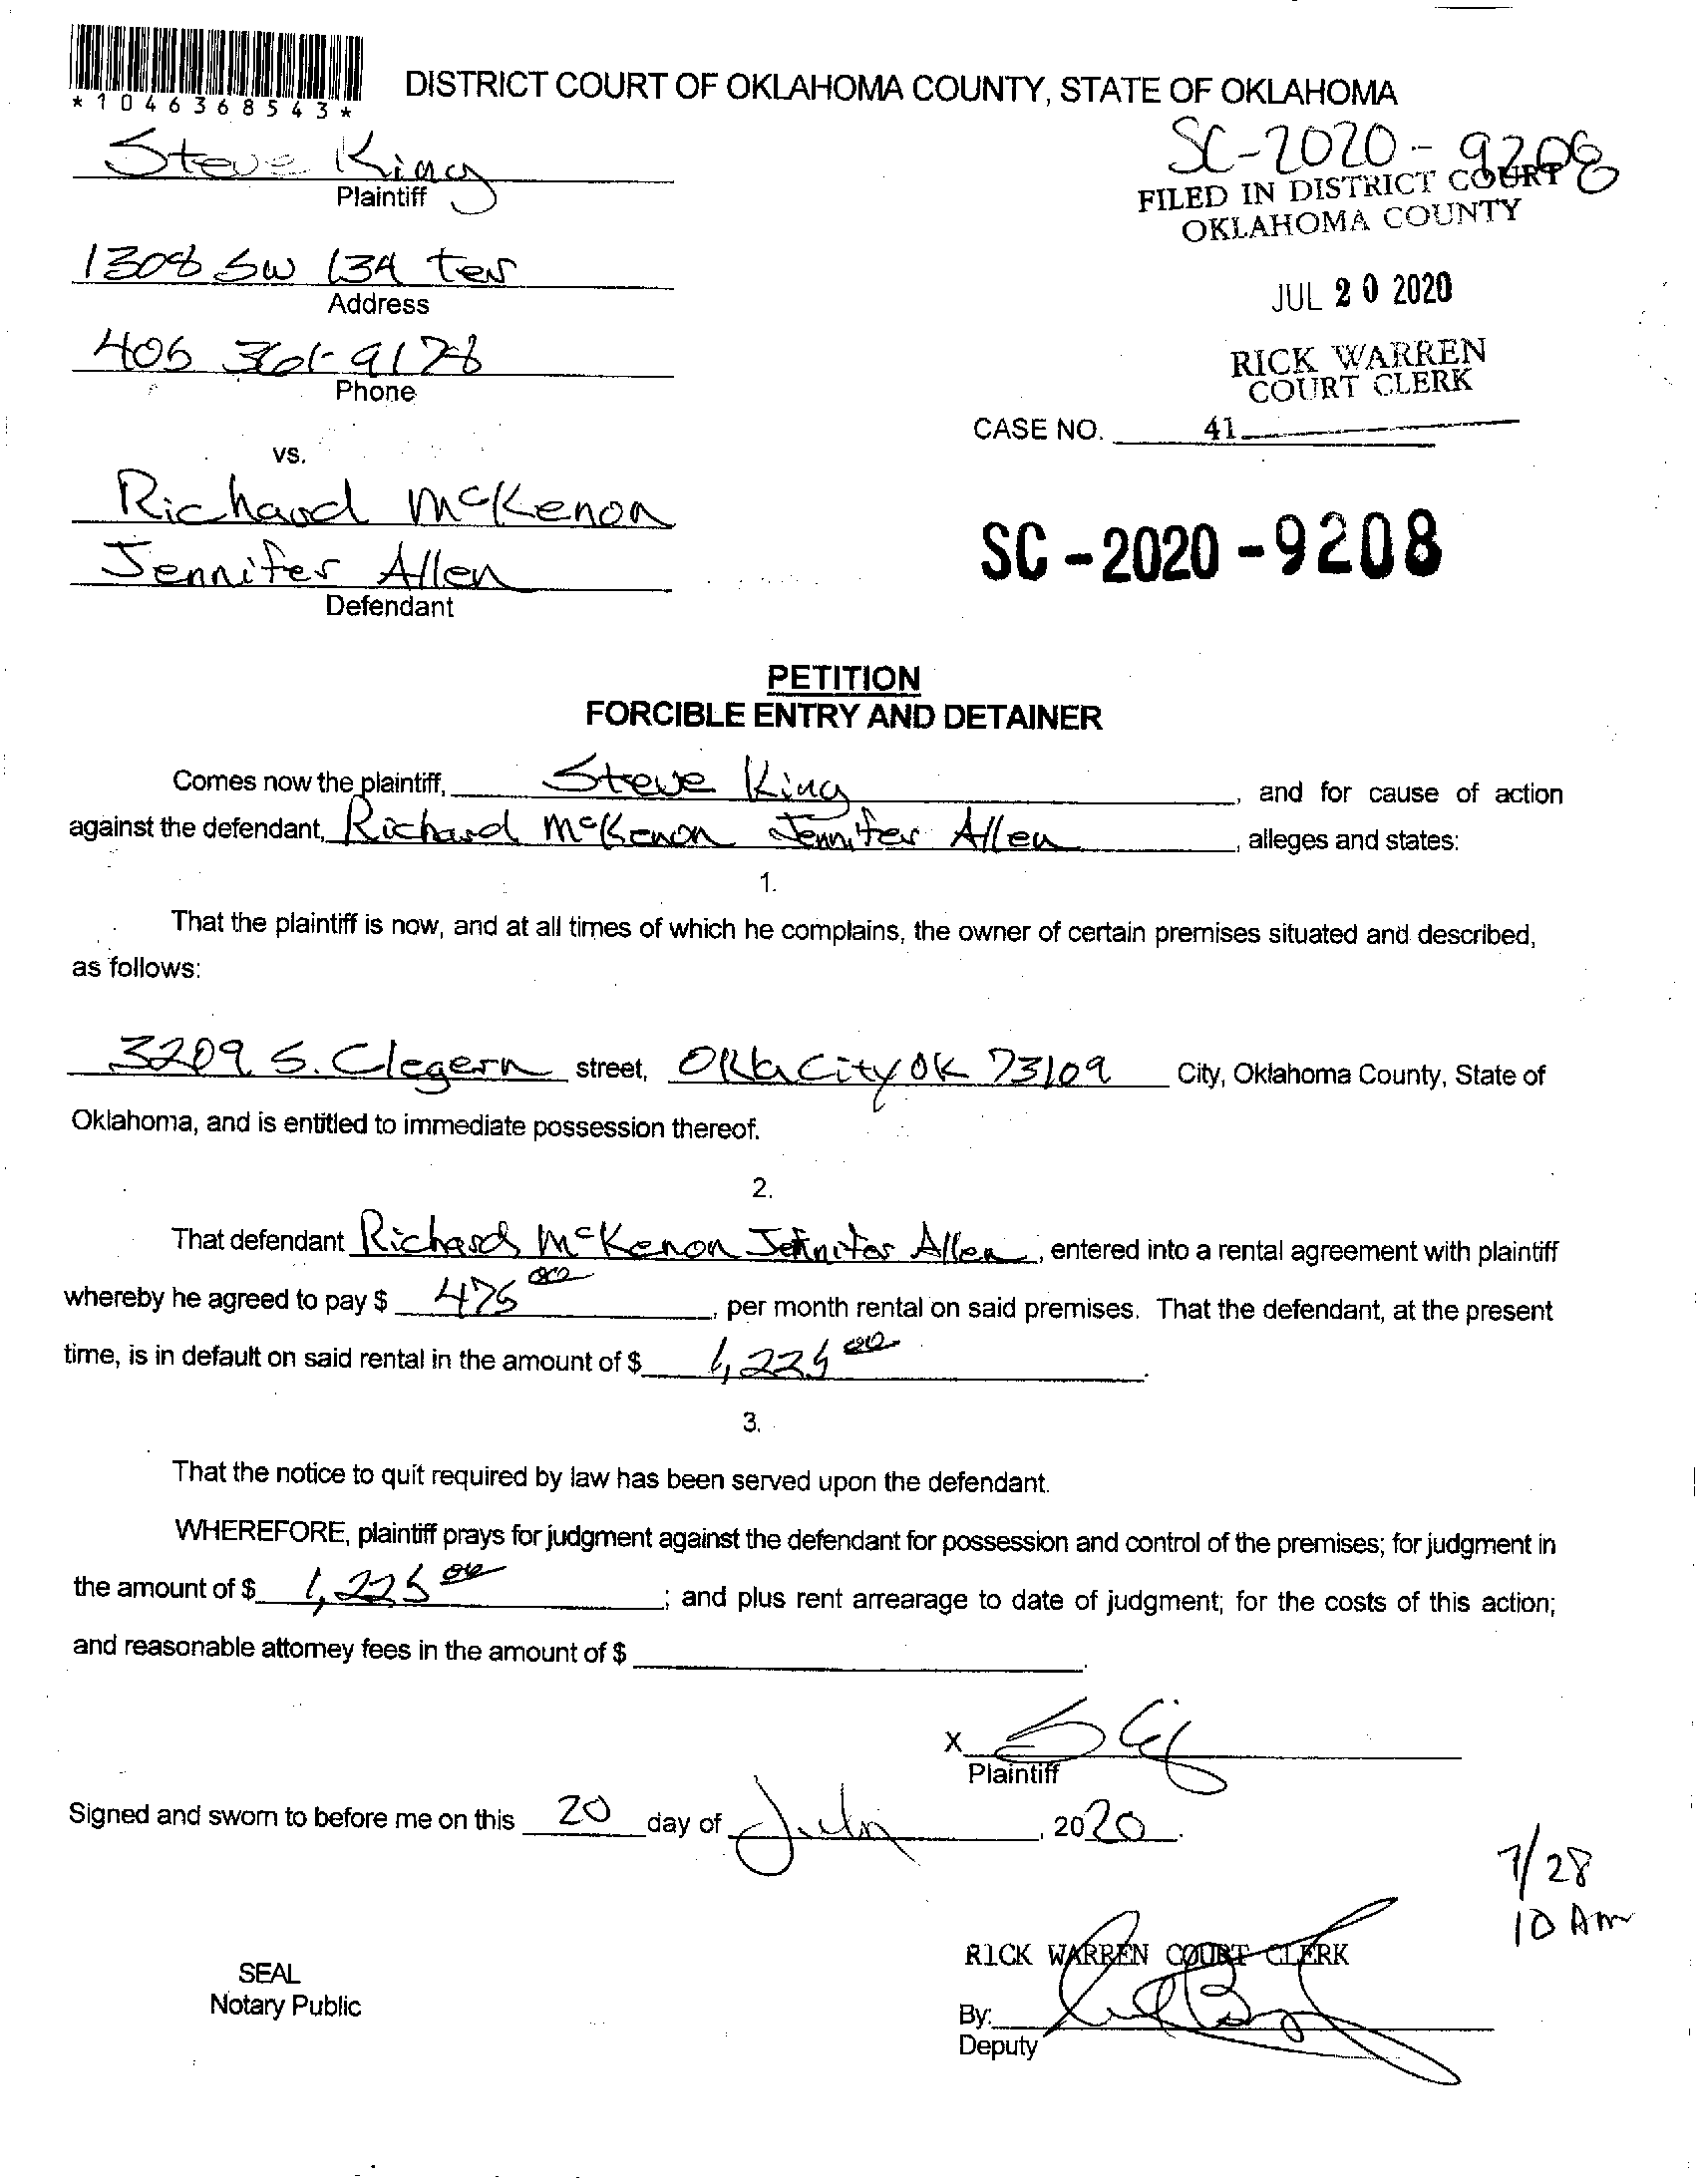 *1046368543*
DISTRICT COURT OF OKLAHOMA COUNTY, STATE OF OKLAHOMA
Steve King
Plaintiff
SC-2020-9208
FILED IN DISTRICT COURT
OKLAHOMA COUNTY
1308 SW 134 ter
Address
JUL 20 2020
405 361-9178
Phone
RICK WARREN
COURT CLERK
CASE NO. 41
vs.
Richard McKenon
Jennifer Allen
Defendant
SC-2020-9208
PETITION
FORCIBLE ENTRY AND DETAINER
Comes now the plaintiff, Steve King, and for cause of action
against the defendant, Richard McKenon Jennifer Allen, alleges and states:
1.
That the plaintiff is now, and at all times of which he complains, the owner of certain premises situated and described,
as follows:
3209 S. Clegern street, Okla City OK 73109 City, Oklahoma County, State of
Oklahoma, and is entitled to immediate possession thereof.
2.
That defendant Richard McKenon Jennifer Allen, entered into a rental agreement with plaintiff
whereby he agreed to pay $ 475 00, per month rental on said premises. That the defendant, at the present
time, is in default on said rental in the amount of $ 1,225 00.
3.
That the notice to quit required by law has been served upon the defendant.
WHEREFORE, plaintiff prays for judgment against the defendant for possession and control of the premises; for judgment in
the amount of $ 1,225 00; and plus rent arrearage to date of judgment; for the costs of this action;
and reasonable attorney fees in the amount of $
X
Plaintiff
Signed and sworn to before me on this 20 day of July, 2020.
7/28
10 Am
RICK WARREN COURT CLERK
SEAL
Notary Public
By:
Deputy